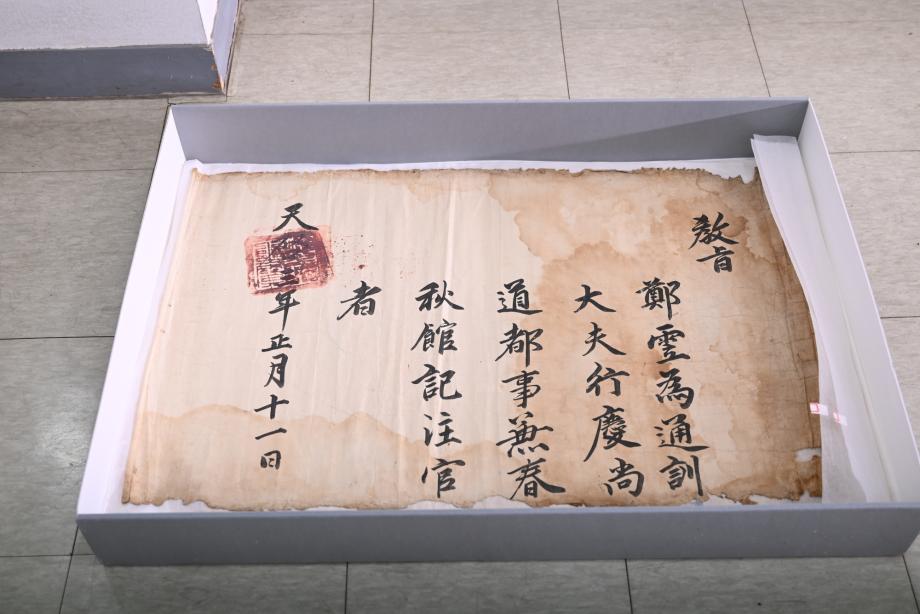 敎旨
鄭雲為通訓
大夫行慶尚
道都事兼春
秋館記注官
者
天 三年正月十一日